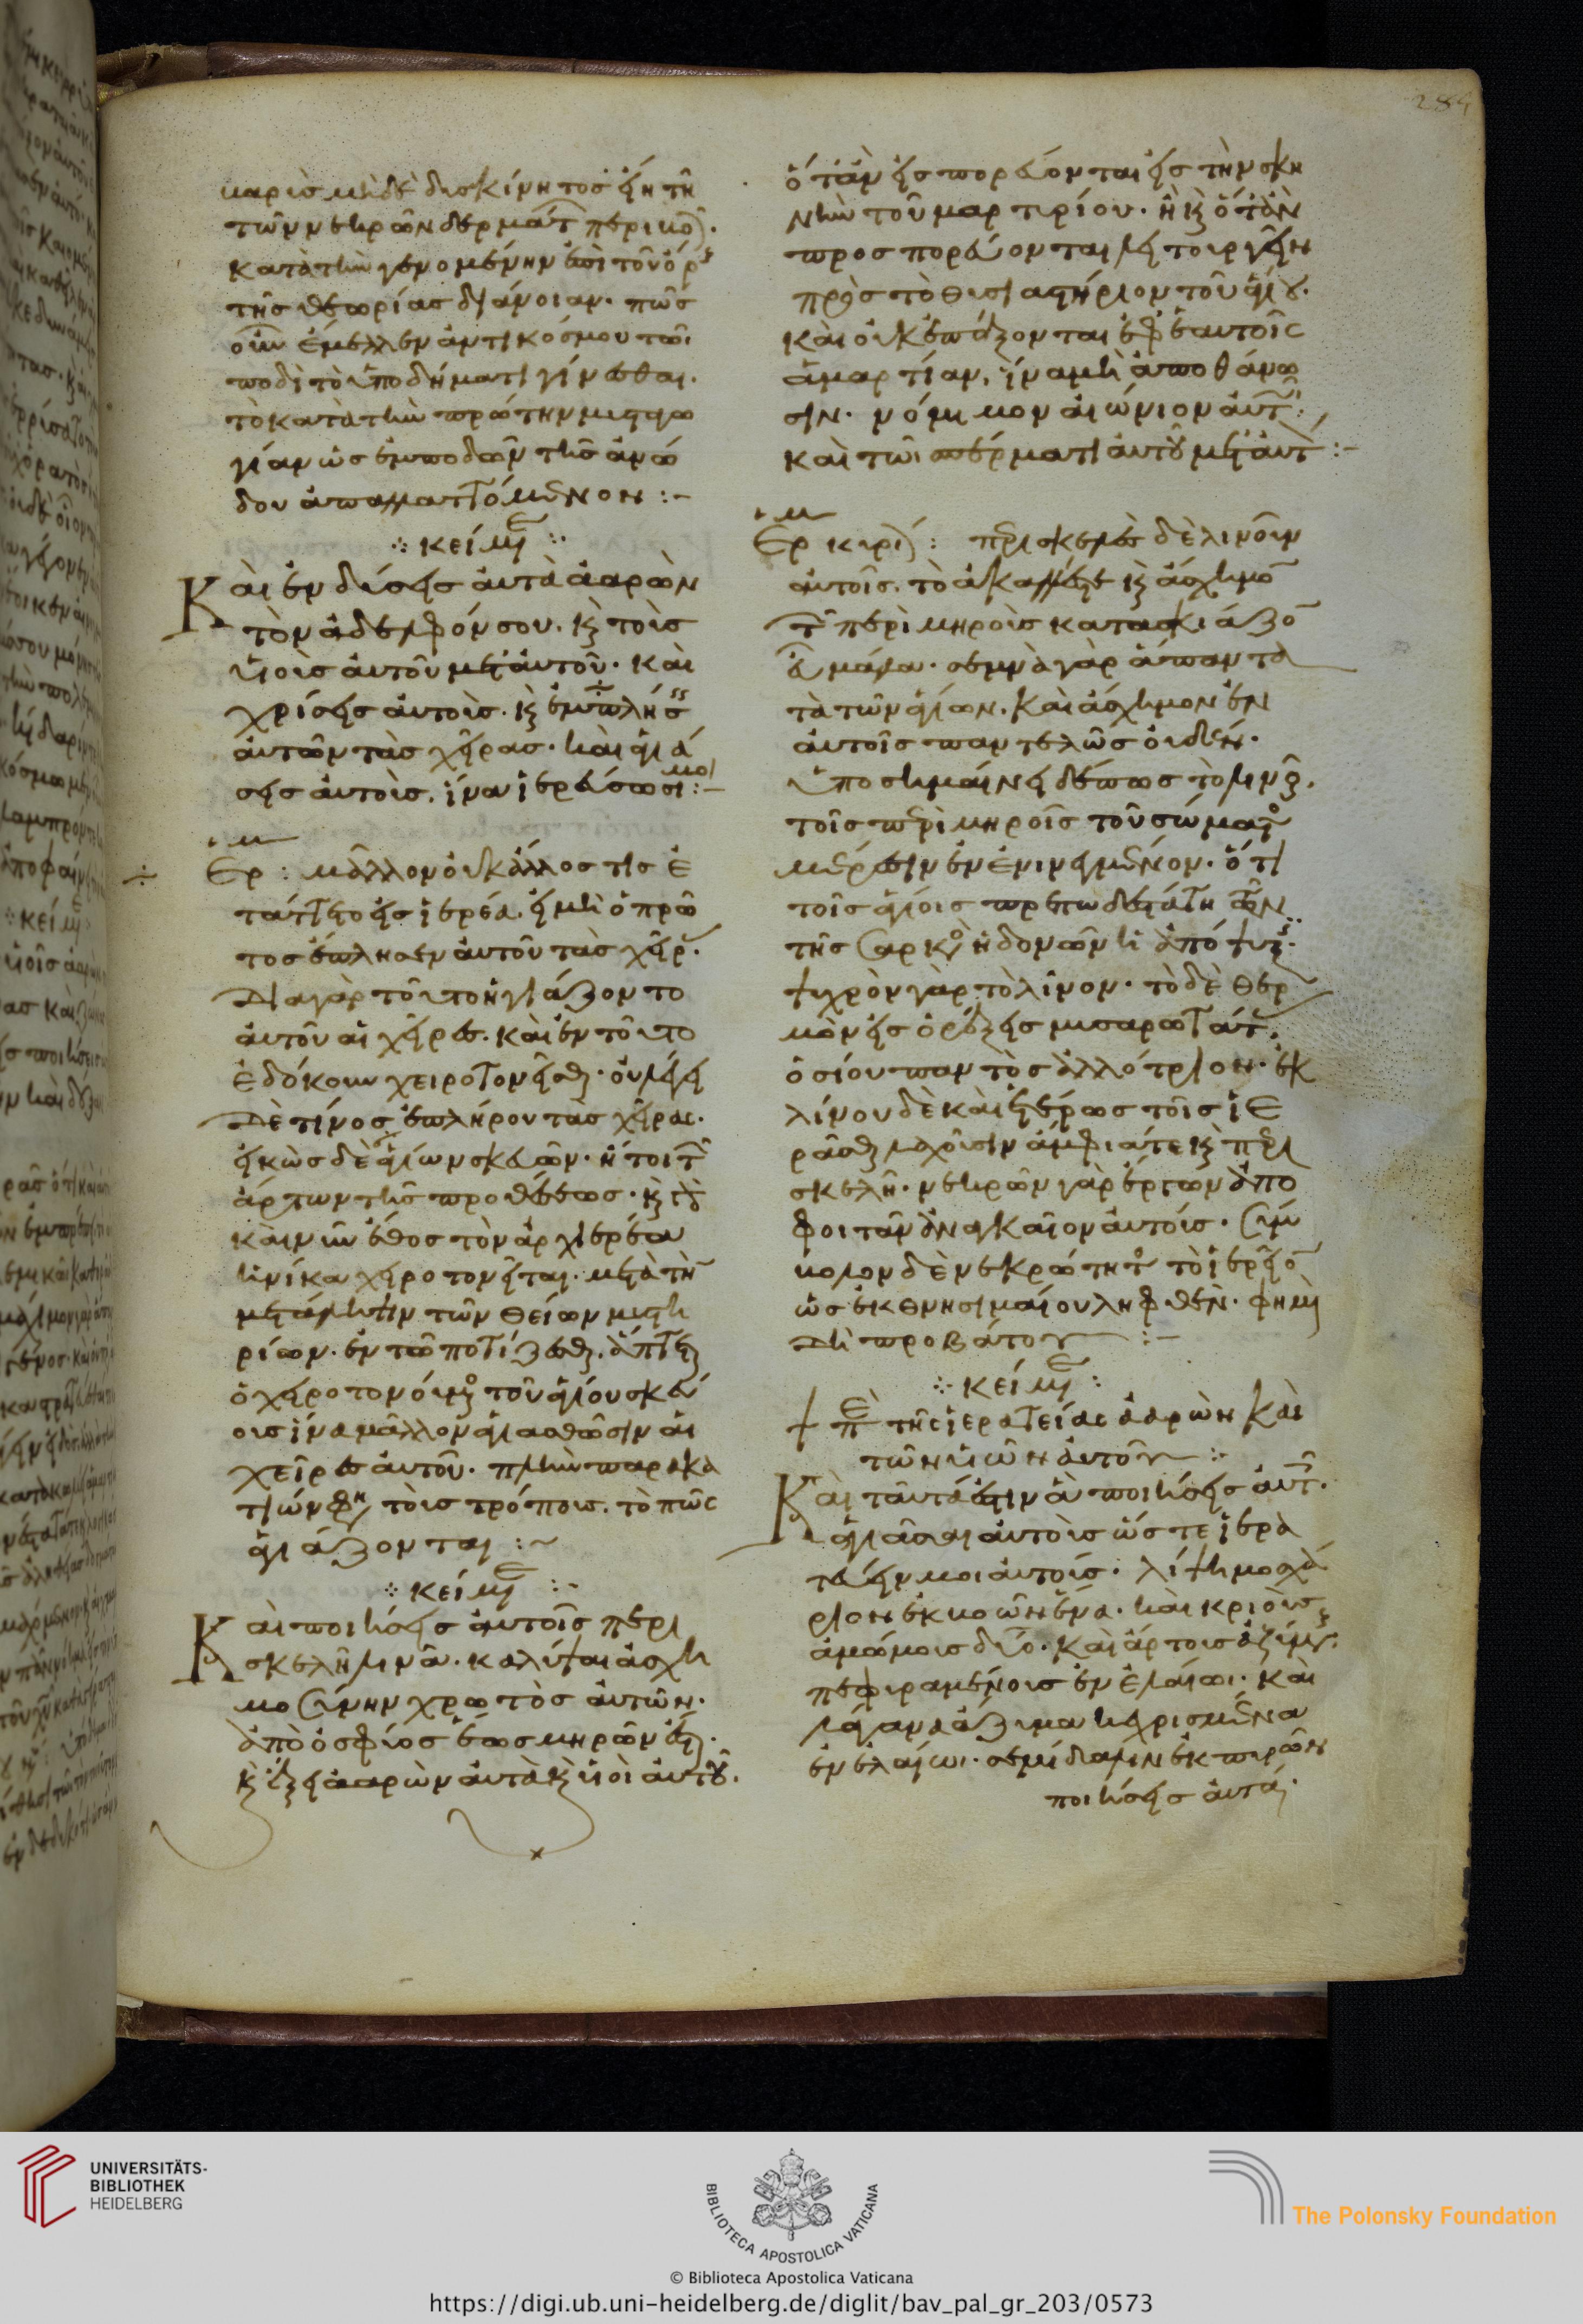 μαρὶς μὴδὲ δυσκίνητος εἴη τῆ
τῶν νεκρῶν δερμάτ
κατὰ τὴν γενομένην ἐπὶ τοῦ ὄρ
τῆς θεωρίας διάνοιαν. πῶς
οὖν ἔμελλεν ἀντὶ κόσμου τῶι
ποδὶ τὸ ὑποδήματι γίνεσθαι.
τὸ κατὰ τὴν πρώτην μυσταγω
γίαν ὡς ἐμποδὼν τῆς ἀνό
δου ἀπαλλαττόμενον :-
κείμ
Καὶ ἐνδύσεις αὐτὰ ἀαρὼν
τὸν ἀδελφόν σου. κ τοὺς
υἱοὺς αὐτοῦ μετ αὐτοῦ. καὶ
χρίσεις αὐτοὺς. κ ἐμπλήσ
αὐτῶν τὰς χεῖρας. καὶ ἁγιά
σεις αὐτοὺς. ἵνα ἱερεύσωσι μοι :-
Ερμ : μᾶλλον οὐκ ἄλλος τις ἐ
τάττετο εἰς ἱερέα. εἰ μὴ ὁ πρῶ
τος ἔπλησεν αὐτοῦ τὰς χεῖρ.
Διὰ γὰρ τοῦτο ἡγιάζοντο
αὐτοῦ αἱ χεῖρες. καὶ ἐν τούτο
ἐδόκουν χειροτονεῖσθαι. οὐ λέγει
Δὲ τίνος ἐπλήρου τὰς χεῖρας.
εἰκὼς δὲ ἁγίων σκευῶν. ἤτοι τ
ἄρτων τῆς προθέσεως. κ
καὶ νῦν ἔθος τὸν ἀρχιερέα
ἡνίκα χειροτονεῖται. μετὰ τὴν
μετάληψιν τῶν θείων μυστη
ρίων. ἐν τῶ ποτίζεσθαι. ἅπτεται
ὁ χειροτονούμενος τοῦ ἁγίου σκεύ
ους ἵνα μᾶλλον ἁγιασθῶσιν αἱ
χεῖρες αὐτοῦ. πλὴν παρακα
τιών τοὺς τρόπους. τὸ πῶς
ἁγιάζονται :~
κείμ
Καὶ ποιήσεις αὐτοῖς περι
σκελῆ λινᾶ. καλύψαι ἀσχη
μοσύνην χρωτὸς αὐτῶν.
ἀπὸ ὀσφύος ἕως μηρῶν ἔσται.
κ ἕξει ἀαρὼν αὐτὰ κ υἱοὶ αὐτοῦ.
ὅταν εἰσπορεύονται εἰς τὴν σκη
νὴν τοῦ μαρτυρίου. ἢ κ ὅταν
προσπορεύονται λειτουργεῖν
πρὸς τὸ θυσιαστήριον τοῦ ἁγίου.
καὶ οὐκ ἐπάξονται ἐφ ἑαυτοῖς
ἁμαρτίαν, ἵνα μὴ ἀποθάνω
σιν. νόμιμον αἰώνιον αὐτ
καὶ τῶι σπέρματι αὐτοῦ μετ αὐτ :-
Ερμ κυρί : περισκελὲς δὲ λινοῦν
αὐτοῖς. τὸ ἀκαλλὲς κ ἄσχημο
τ περὶ μηροὺς κατασκιάζο
μάλα. σεμνὰ γὰρ ἅπαντα
τὰ τῶν ἁγίων. Καὶ ἄσχημον ἐν
αὐτοῖς παντελῶς οὐδέν.
ὑποσημαίνει δέπως τὸ
τοῖς περὶ μηροῖς τοῦ σώματ
μέρεσιν ὅτι
τοῖς ἁγίοις πρεπωδεστάτη τῶν
τῆς σαρκὸς ἡδονῶν ἡ ἀπόψυξ
ψυχρὸν γὰρ τὸ λίνον. τὸ δὲ θερ
μὸν εἰς ὀρέξεις μυσαρωτάτ
ὁσίου παντὸς ἀλλότριον. ἐκ
λίνου δὲ καὶ ἑτέρως τοῖς ἱε
ρᾶσθαι λαχοῦσιν ἀμφία τε κ περι
σκελῆ. νεκρῶν γὰρ ἔργων ἀπο
φοιτᾶν ἀναγκαῖον αὐτούς. σύμ
βολον δὲ νεκρότητ τὸ
ὡς ἐκ θνησιμαίου ληφθέν. φημὶ
Δὴ προβάτου :-
κείμ
Επ τῆς ἱερατείας ἀαρὼν καὶ
τῶν υἱῶν αὐτοῦ
Καὶ ταῦτά ἐστιν ἃ ποιήσεις αὐτ.
ἁγιᾶσαι αὐτοὺς ὥστε ἱερα
τεύειν μοι αὐτούς. λήψη μοσχά
ριον ἐκ βοῶν ἕνα. καὶ κριοὺς
ἀμώμους δύο. καὶ ἄρτους ἀζύμ
πεφυραμένους ἐν ἐλαίωι. καὶ
λάγανα ἄζυμα κεχρισμένα
ἐν ἐλαίωι. σεμίδαλιν ἐκ πυρῶν
ποιήσεις αὐτά.
UNIVERSITÄTS-
BIBLIOTHEK
HEIDELBERG
BIBLIOTECA APOSTOLICA VATICANA
The Polonsky Foundation
© Biblioteca Apostolica Vaticana
https://digi.ub.uni-heidelberg.de/diglit/bav_pal_gr_203/0573